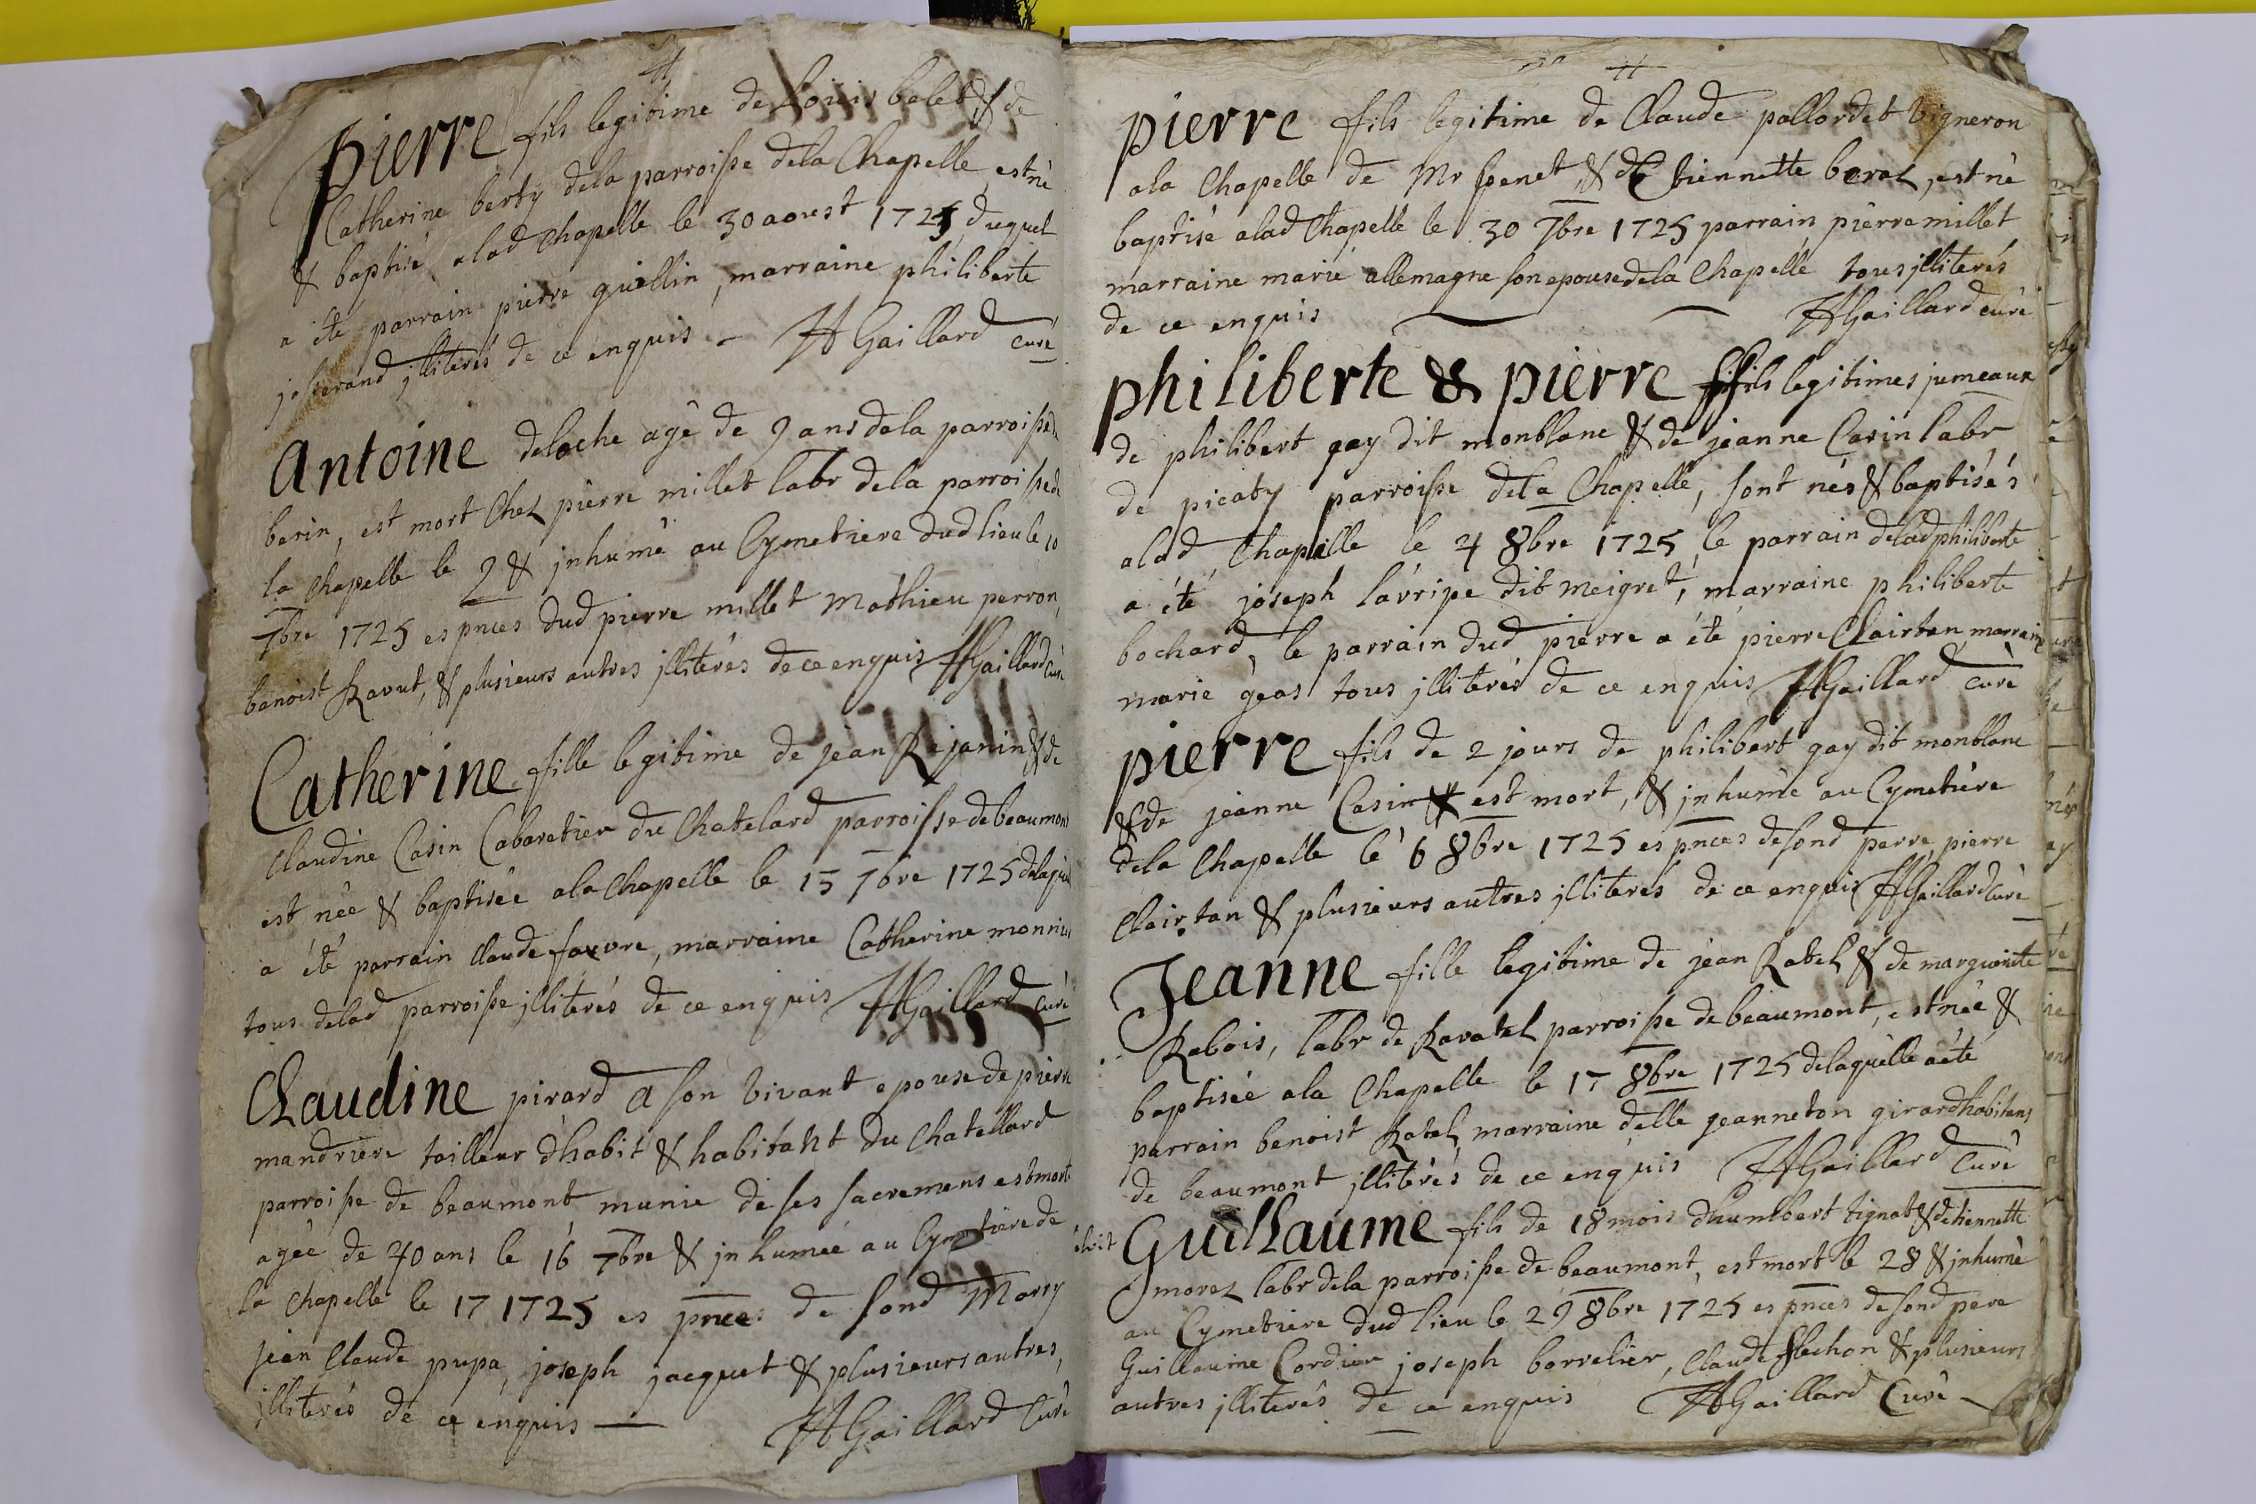 pierre fils legitime de Loüis belet & de
Catherine berty dela parroisse dela Chapelle, est né
& baptisé alad Chapelle le 30 aoust 1725 duquel
a été parrain pierre guillin, marraine philiberte
joberand jlliterés de ce enquis - H Gaillard Curé
Antoine deloche agé de 9 ans dela parroisse de
berin, est mort Chez pierre millet labr dela parroisse de
la Chapelle le 9 & jnhumé au Cymetiere dud lieu le 10
7bre 1725 es pnces dud pierre millet Mathieu perron,
benoist Ravut, & plusieurs autres jlliterés de ce enquis H Gaillard Curé
Catherine fille legitime de jean Rejanin & de
Claudine Casin Cabaretier du Chatelard parroisse de beaumont
est née & baptisée ala Chapelle le 15 7bre 1725 delaquel
a été parrain Claude favre, marraine Catherine monnier
tous delad parroisse jlliterés de ce enquis H Gaillard Curé
Claudine pirard a son vivant epouse de pierre
mandriere tailleur dhabit & habitant du Chatellard
parroisse de beaumont munie de ses sacremens est morte
agée de 40 ans le 16 7bre & jnhumée au Cymetiere de
la Chapelle le 17 1725 es pnces de sond Marry
jean Claude pupa, joseph jacquet & plusieurs autres,
jlliterés de ce enquis — H Gaillard Curé
pierre fils legitime de Claude pallordet Vigneron
ala Chapelle de Mr penet, & dEtiennette boraz, est né
baptisé alad Chapelle le 30 7bre 1725 parrain pierre millet
marraine marie allemagne son epouse dela Chapelle tous jlliterés
de ce enquis — H Gaillard curé
philiberte & pierre fils legitimes jumeaux
de philibert gay dit monblanc & de jeanne Casin labr
de picaty parroisse dela Chapelle, sont nés & baptisés
alad Chapelle le 4 8bre 1725, le parrain delad philiberte
a été joseph lavripe dit meigret, marraine philiberte
bochard, le parrain dud pierre a été pierre Clairtan, marraine
marie geas tous jlliterés de ce enquis H Gaillard Curé
pierre fils de 2 jours de philibert gay dit monblanc
& de jeanne Casin est mort, & jnhumé au Cymetiere
dela Chapelle le 6 8bre 1725 es pnces de sond perre, pierre
Clairtan & plusieurs autres jlliterés de ce enquis H Gaillard Curé
Jeanne fille legitime de jean Ratel & de marguerite
Rabois, labr de Ravatel parroisse de beaumont, est née &
baptisée ala Chapelle le 17 8bre 1725 delaquelle a été
parrain benoist Ratel, marraine delle jeanneton girard habitans
de beaumont jlliterés de ce enquis H Gaillard Curé
Guillaume fils de 18 mois dhumbert tignat & detiennette
morez labr dela parroisse de beaumont, est mort le 28 & jnhumé
au Cymetiere dud lieu le 29 8bre 1725 es pnces de sond pere
Guillaume Cordier joseph borrelier, Claude flechon & plusieurs
autres jlliterés de ce enquis H Gaillard Curé